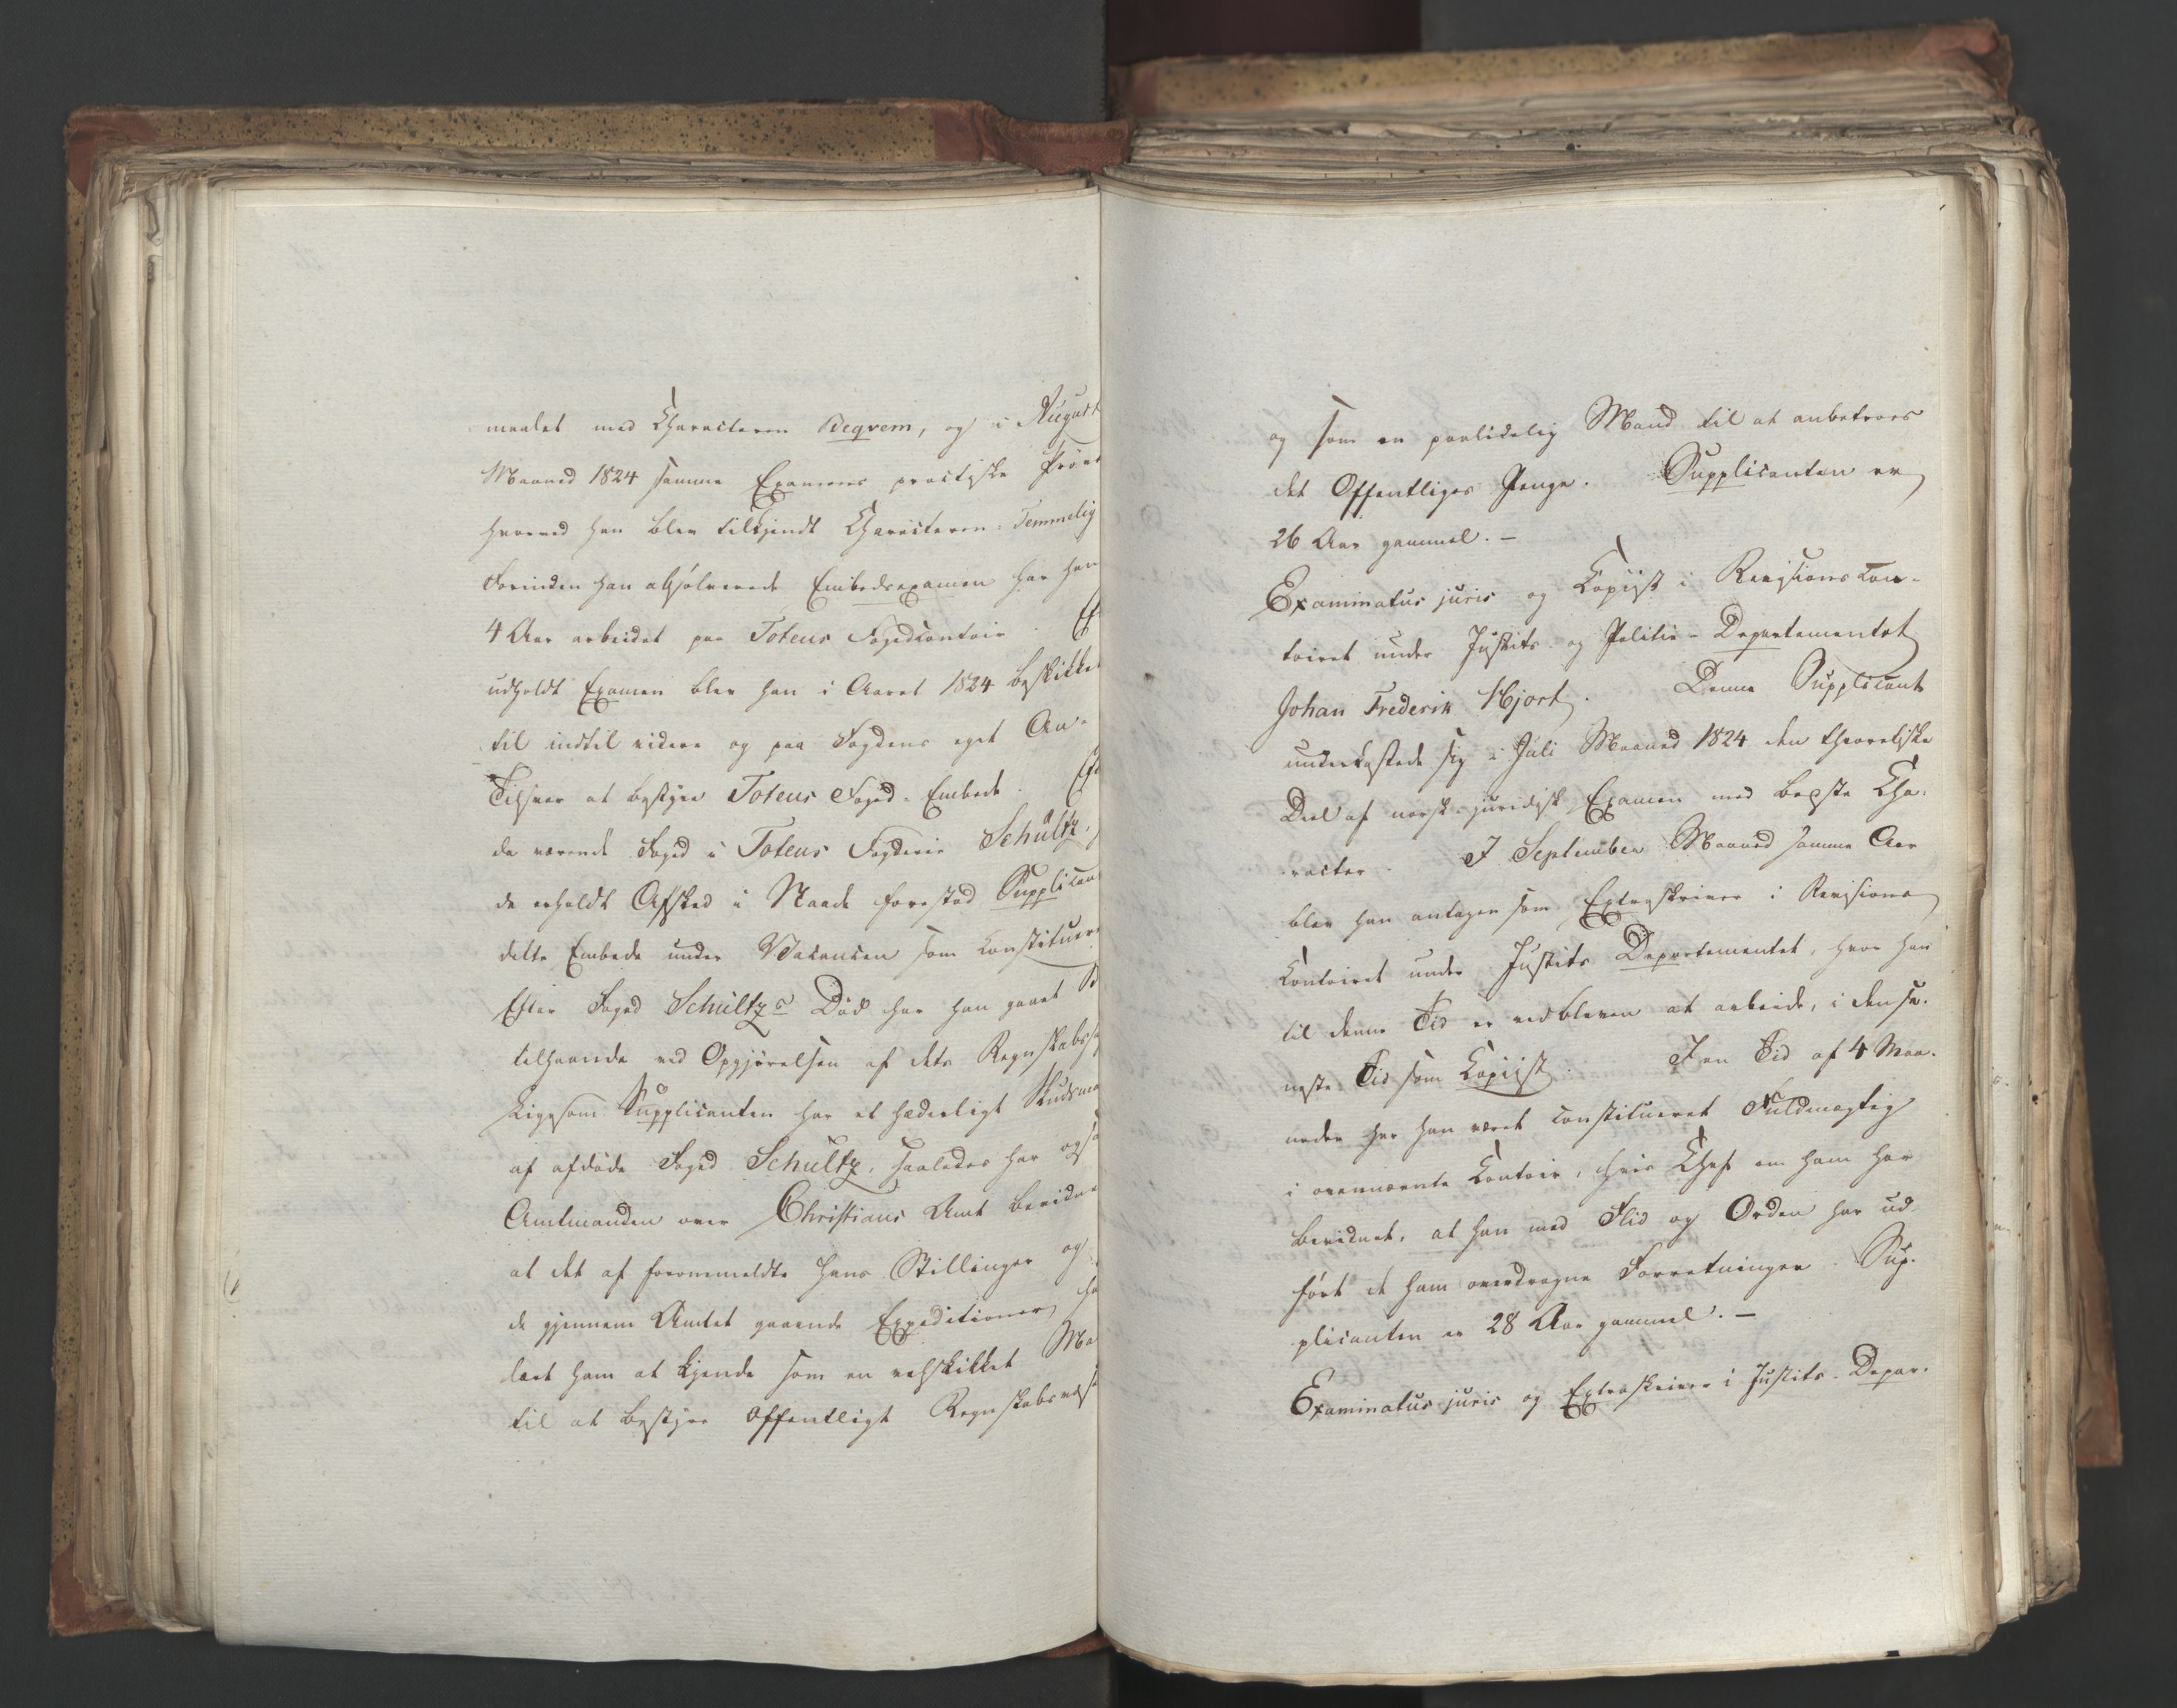 maalet med Characteren Beqvem, og i August
Maaned 1824 samme Examens practiske Prøve
hvorved han blev tilkjendt Characteren: Temmelig
Forinden han absolverede Embedsexamen har han
4 Aar arbeidet paa Totens Fogedcontoir. Ef
udholdt Examen blev han i Aaret 1824 beskikket
til indtil videre og paa Fogdens eget An-
Tilsvar at bestyre Totens Foged-Embede. Ef
da værende Foged i Totens Fogderie Schültz,
de erholdt Afsked i Naade forestod Supplican
dette Embede under Vacancen som constituer
Efter Foged Schültz's Død har han gaaet
tilhaande ved Opgjørelsen af dets Regnskabs
Ligesom Supplicanten har et hæderligt Skudsmaa
af afdøde Foged Schültz, saaledes har ogsaa
Amtmanden over Christians Amt bevidne
at det af foranmeldte hans Stillinger og
de gjennem Amtet gaaende Expeditioner, ha
lært ham at kjende som en velskikket Ma
til at bestyre offentligt Regnskabsvæs
og som en paalidelig Mand til at anbetroes
det Offentliges Penge. Supplicanten er
26 Aar gammel. —
Examinatus juris og Copiist i Revisions Con-
toiret under Justits- og Politie-Departementet
Johan Frederik Hjort. Denne Supplicant
underkastede sig i Juli Maaned 1824 den theoretiske
Deel af norsk-juridisk Examen med bedste Cha-
racter. I September Maaned samme Aar
blev han antagen som Extraskriver i Revisions
Contoiret under Justits Departementet, hvor han
til denne Tid er vedbleven at arbeide, i den se-
neste Tid som Copiist. I en Tid af 4 Maa-
neder har han været constitueret Fuldmægtig
i ovennævnte Contoir, hvis Chef om ham har
bevidnet, at han med Flid og Orden har ud-
ført de ham overdragne Forretninger. Sup-
plicanten er 28 Aar gammel. —
Examinatus juris og Extraskriver i Justits-Depar-